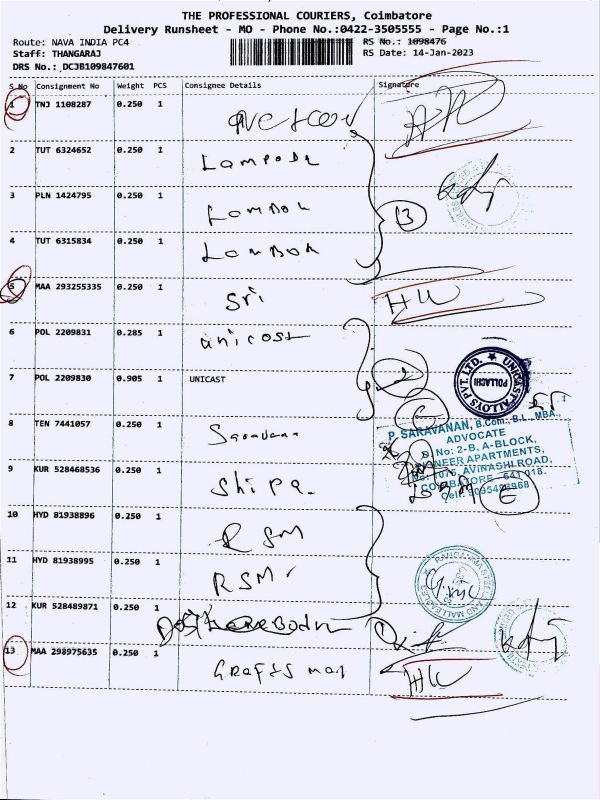 THE PROFESSIONAL COURIERS, Coimbatore
Delivery Runsheet - MO - Phone No.:0422-3505555 - Page No.:1
Route: NAVA INDIA PC4
RS No.: 1098476
Staff: THANGARAJ
RS Date: 14-Jan-2023
DRS No.: DCJB109847601
S No Consignment No Weight PCS Consignee Details Signature
1 TNJ 1108287 0.250 1
2 TUT 6324652 0.250 1
3 PLN 1424795 0.250 1
4 TUT 6315834 0.250 1
13
5 MAA 293255335 0.250 1 Sri HW
6 POL 2209831 0.285 1 unicast
7 POL 2209830 0.905 1 UNICAST
UNICAST ALLOYS PVT. LTD. POLLACHI
8 TEN 7441057 0.250 1 Saravana
P. SARAVANAN, B.Com., B.L., MBA.,
ADVOCATE
D. No: 2-B, A-BLOCK,
PIONEER APARTMENTS,
No: 1076, AVINASHI ROAD,
COIMBATORE - 641 018.
Cell:
E
9 KUR 528468536 0.250 1 Shipa
10 HYD 81938896 0.250 1 RSM
11 HYD 81938995 0.250 1 RSM
12 KUR 528489871 0.250 1
13 MAA 298975635 0.250 1 Grafts man HW